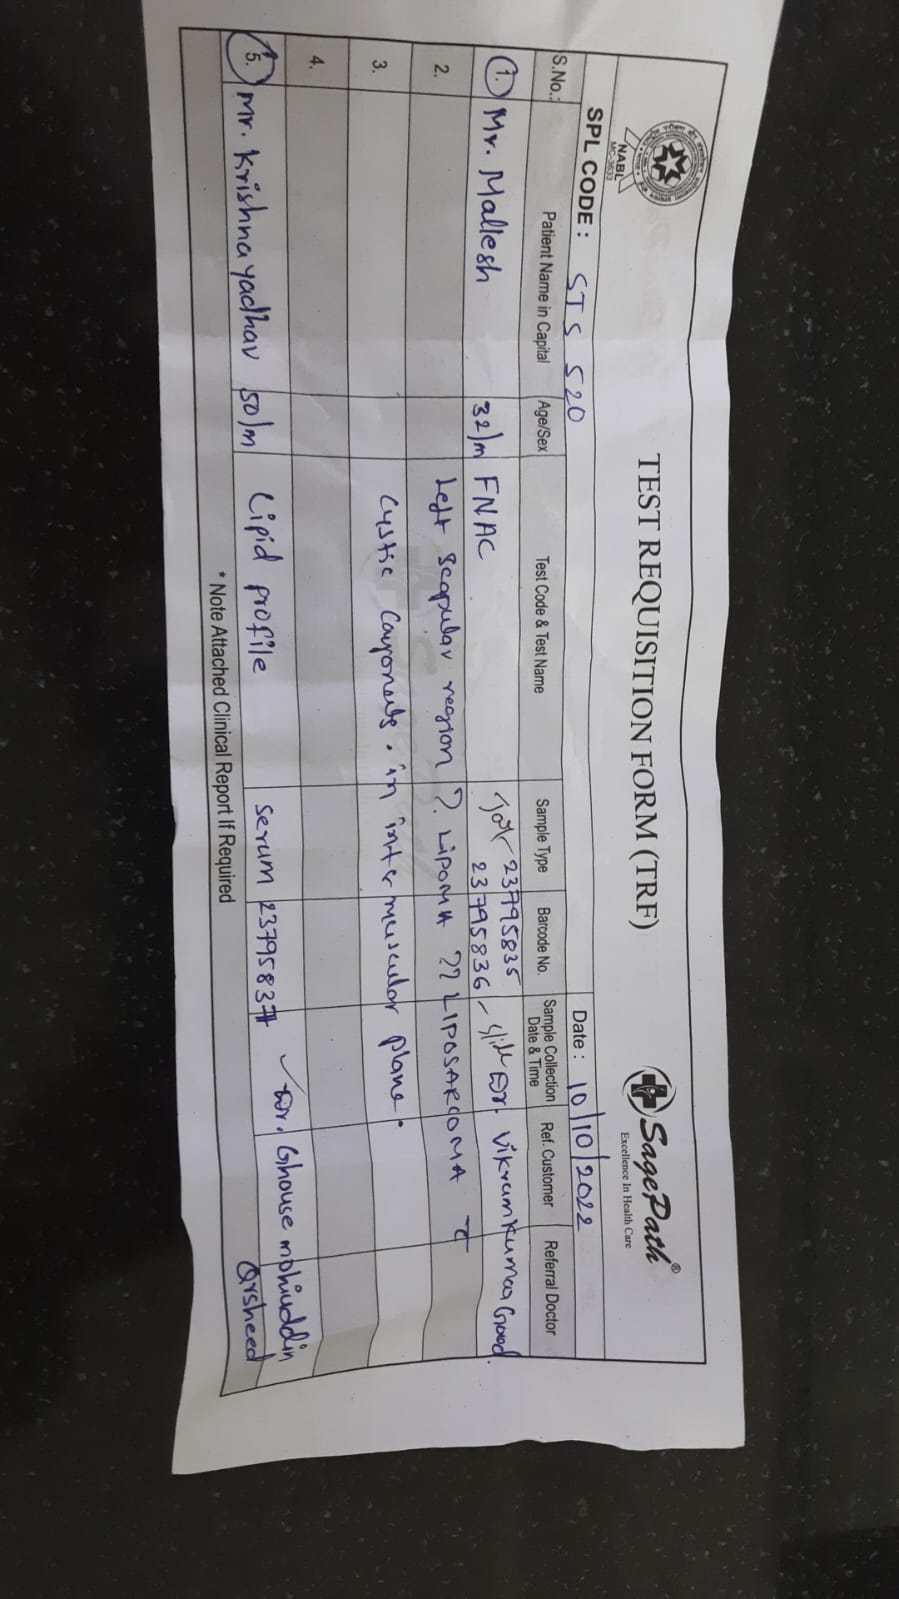 NABL
MC-3633
TEST REQUISITION FORM (TRF)
SagePath®
Excellence In Health Care
SPL CODE : STS 520
Date : 10/10/2022
S.No.: Patient Name in Capital Age/Sex Test Code & Test Name Sample Type Barcode No. Sample Collection Date & Time Ref. Customer Referral Doctor
1. Mr. Mallesh 32/m FNAC 23795835 Dr. Vikram Kumar Goud.
23795836 - Slide
2. Left scapular region ?. LIPOMA ?? LIPOSARCOMA c
3. Cystic Componets. in inter muscular plane.
4.
5. Mr. Krishna yadhav 50/m Lipid profile serum 23795837 Dr. Ghouse mohiuddin
Qrsheed
* Note Attached Clinical Report If Required